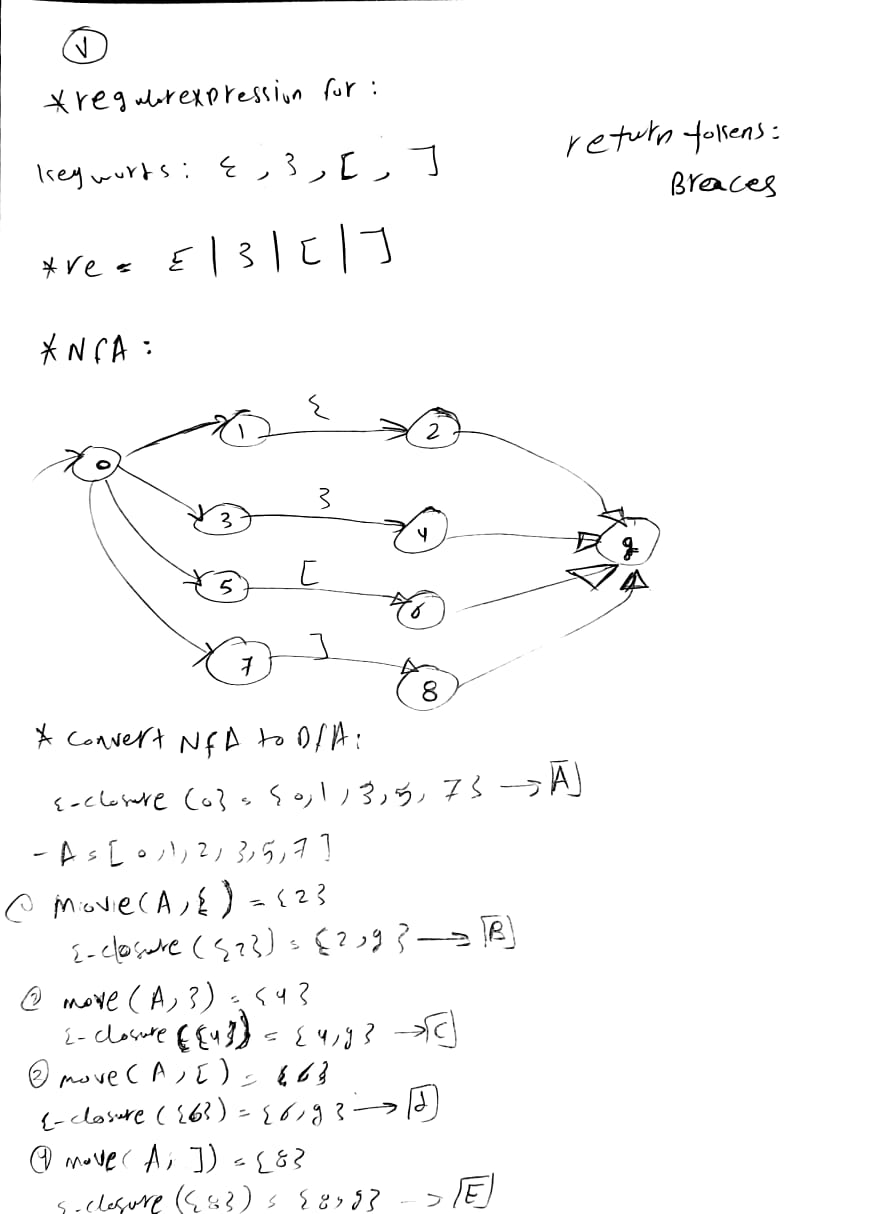 1
* regularexpression for :
return tokens :
keyworts : { , } , [ , ]
Breaces
* re = { | } | [ | ]
* NFA :
{
1
2
0
}
3
4
9
[
5
6
]
7
8
* Convert NFA to DFA :
ε-closure (0} = { 0,1,3,5,7} → A
- A = [ 0,1,2,3,5,7 ]
① Movie(A,{ ) = {2}
ε-closure ({2}) = {2,9} → B
② move (A,}) = {4}
ε-closure ({4}) = {4,9} → C
② move (A,[) = {6}
ε-closure ({6}) = {6,9} → d
④ move( A, ]) = {8}
ε-closure ({8}) = {8,9} → E